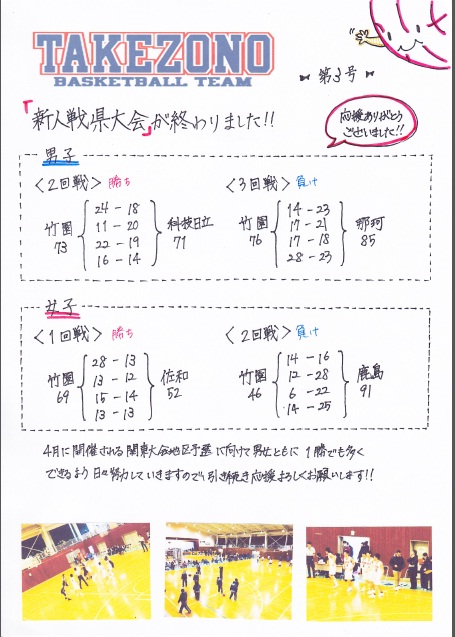 TAKEZONO
BASKETBALL TEAM
第3号
「新人戦県大会」が終わりました!!
応援ありがとう
ございました!!
男子
<2回戦> 勝ち
竹園 73
24 - 18
11 - 20
22 - 19
16 - 14
科技日立 71
<3回戦> 負け
竹園 76
14 - 23
17 - 21
17 - 18
28 - 23
那珂 85
女子
<1回戦> 勝ち
竹園 69
28 - 13
13 - 12
15 - 14
13 - 13
佐和 52
<2回戦> 負け
竹園 46
14 - 16
12 - 28
6 - 22
14 - 25
鹿島 91
4月に開催される関東大会地区予選に向けて男女ともに1勝でも多く
できるよう日々努力していきますので、引き続き応援よろしくお願いします!!